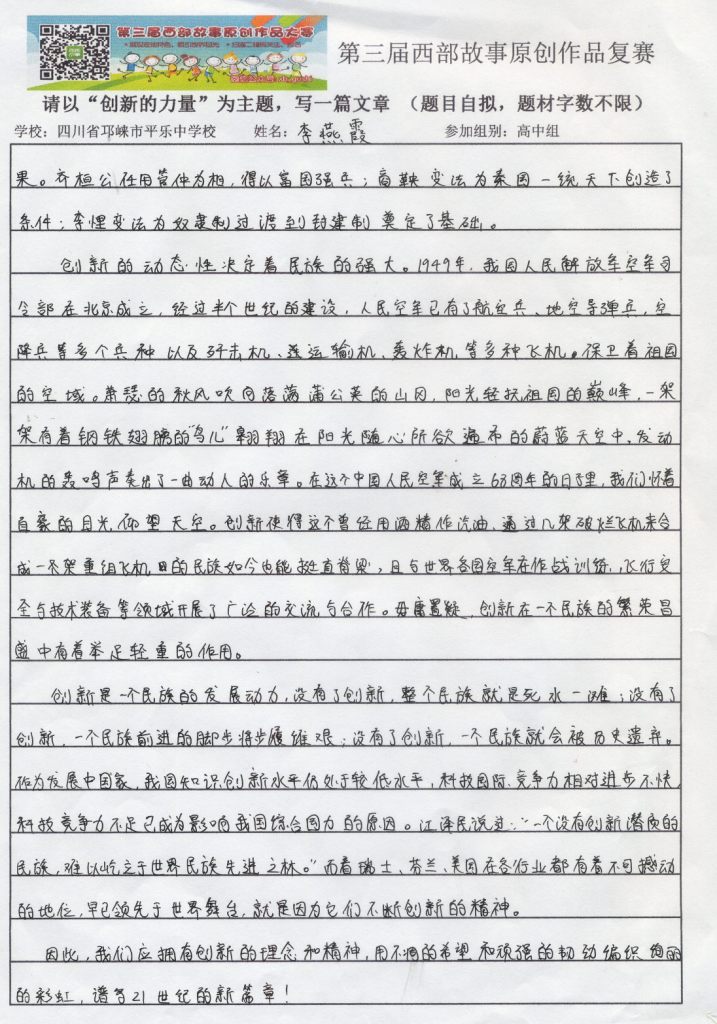 第三届西部故事原创作品大赛
第三届西部故事原创作品复赛
请以“创新的力量”为主题，写一篇文章 （题目自拟，题材字数不限）
学校：四川省邛崃市平乐中学校 姓名：李燕霞 参加组别：高中组
果。齐桓公任用管仲为相，得以富国强兵；商鞅变法为秦国一统天下创造了
条件；李悝变法为奴隶制过渡到封建制奠定了基础。
创新的动态性决定着民族的强大。1949年，我国人民解放军空军司
令部在北京成立，经过半个世纪的建设，人民空军已有了航空兵、地空导弹兵，空
降兵等多个兵种以及歼击机、运输机、轰炸机等多种飞机。保卫着祖国
的空域。萧瑟的秋风吹向落满蒲公英的山冈，阳光轻抚祖国的巅峰，一架
架有着钢铁翅膀的“鸟儿”翱翔在阳光随心所欲遍布的蔚蓝天空中，发动
机的轰鸣声奏出了一曲动人的乐章。在这个中国人民空军成立63周年的日子里，我们怀着
自豪的目光，仰望天空。创新使得这个曾经用酒精作汽油，通过几架破烂飞机来合
成一架重组飞机的民族如今也能挺直脊梁，且与世界各国空军在作战训练，飞行安
全与技术装备等领域开展了广泛的交流与合作。毋庸置疑，创新在一个民族的繁荣昌
盛中有着举足轻重的作用。
创新是一个民族的发展动力，没有了创新，整个民族就是死水一滩；没有了
创新，一个民族前进的脚步将步履维艰；没有了创新，一个民族就会被历史遗弃。
作为发展中国家，我国知识创新水平仍处于较低水平，科技国际竞争力相对进步不快，
科技竞争力不足已成为影响我国综合国力的原因。江泽民说过：“一个没有创新潜质的
民族，难以屹立于世界民族先进之林。”而看瑞士、芬兰、美国在各行业都有着不可撼动
的地位，早已领先于世界舞台，就是因为它们不断创新的精神。
因此，我们应拥有创新的理念和精神，用不凋的希望和顽强的韧劲编织绚丽
的彩虹，谱写21世纪的新篇章！